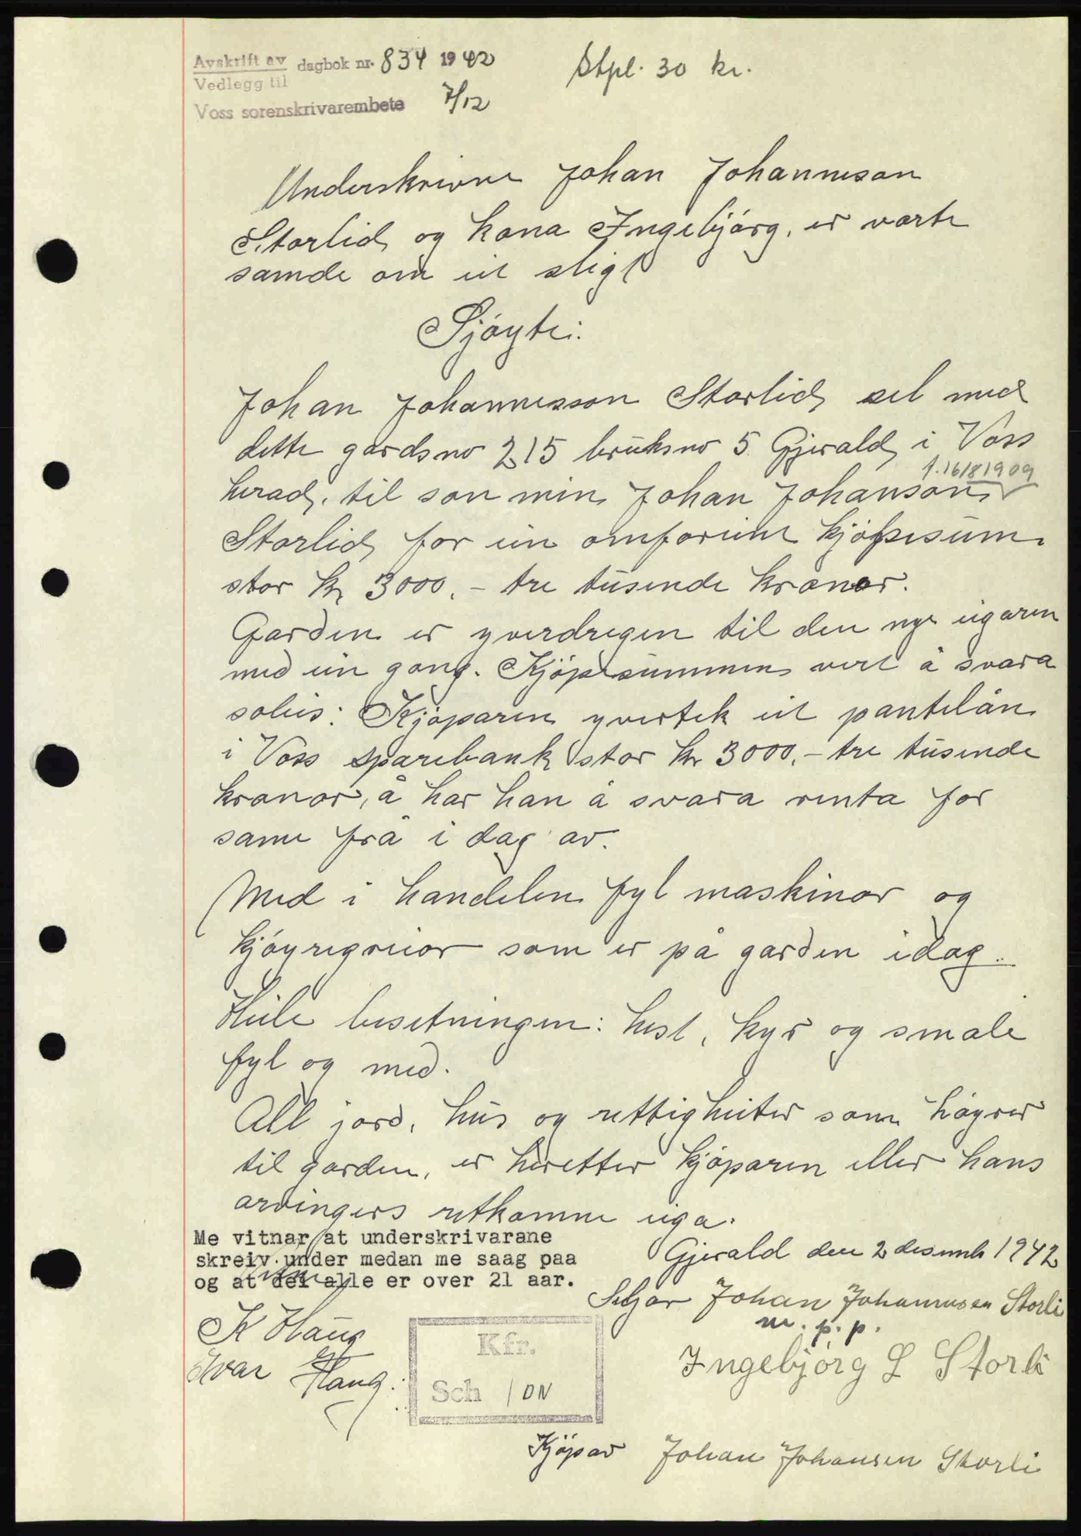 Avskrift av dagbok nr. 834 1942
Vedlegg til
Voss sorenskrivarembete 7/12
Stpl. 30 kr.
Underskrivne Johan Johanneson
Storlid og kona Ingebjörg, er vorte
samde om eit sligt
Sjöyte:
Johan Johannesson Storlid sel med
dette gardsno 215 bruksno 5 Gjerald i Voss
f. 16/8 1909
herad, til son min Johan Johanson
Storlid for ein omforeint kjöpesum
stor kr 3000,- tre tusende kronor.
Garden er yverdregen til den nye eigaren
med ein gong. Kjöpesummen vert å svara
soleis: Kjöparen yvertek eit pantelån
i Voss sparebank stor kr 3000,- tre tusende
kronor, å har han å svara renta for
same frå i dag av.
Med i handelen fyl maskinor og
kjöyregreior som er på garden idag.
Heile besetningen: hest, kyr og smale
fyl og med.
All jord, hus og rettigheiter som höyrer
til garden, er heretter kjöparen eller hans
arvingers retkomne eiga.
Me vitnar at underskrivarane
skreiv under medan me saag paa
og at dei alle er over 21 aar.
Gjerald den 2 desemb 1942
Seljar Johan Johannesen Storli
m. p. p.
K Haug
Ivar Haug.
Ingebjörg L Storli
Kfr.
Sch / DN
Kjöpar Johan Johansen Storli